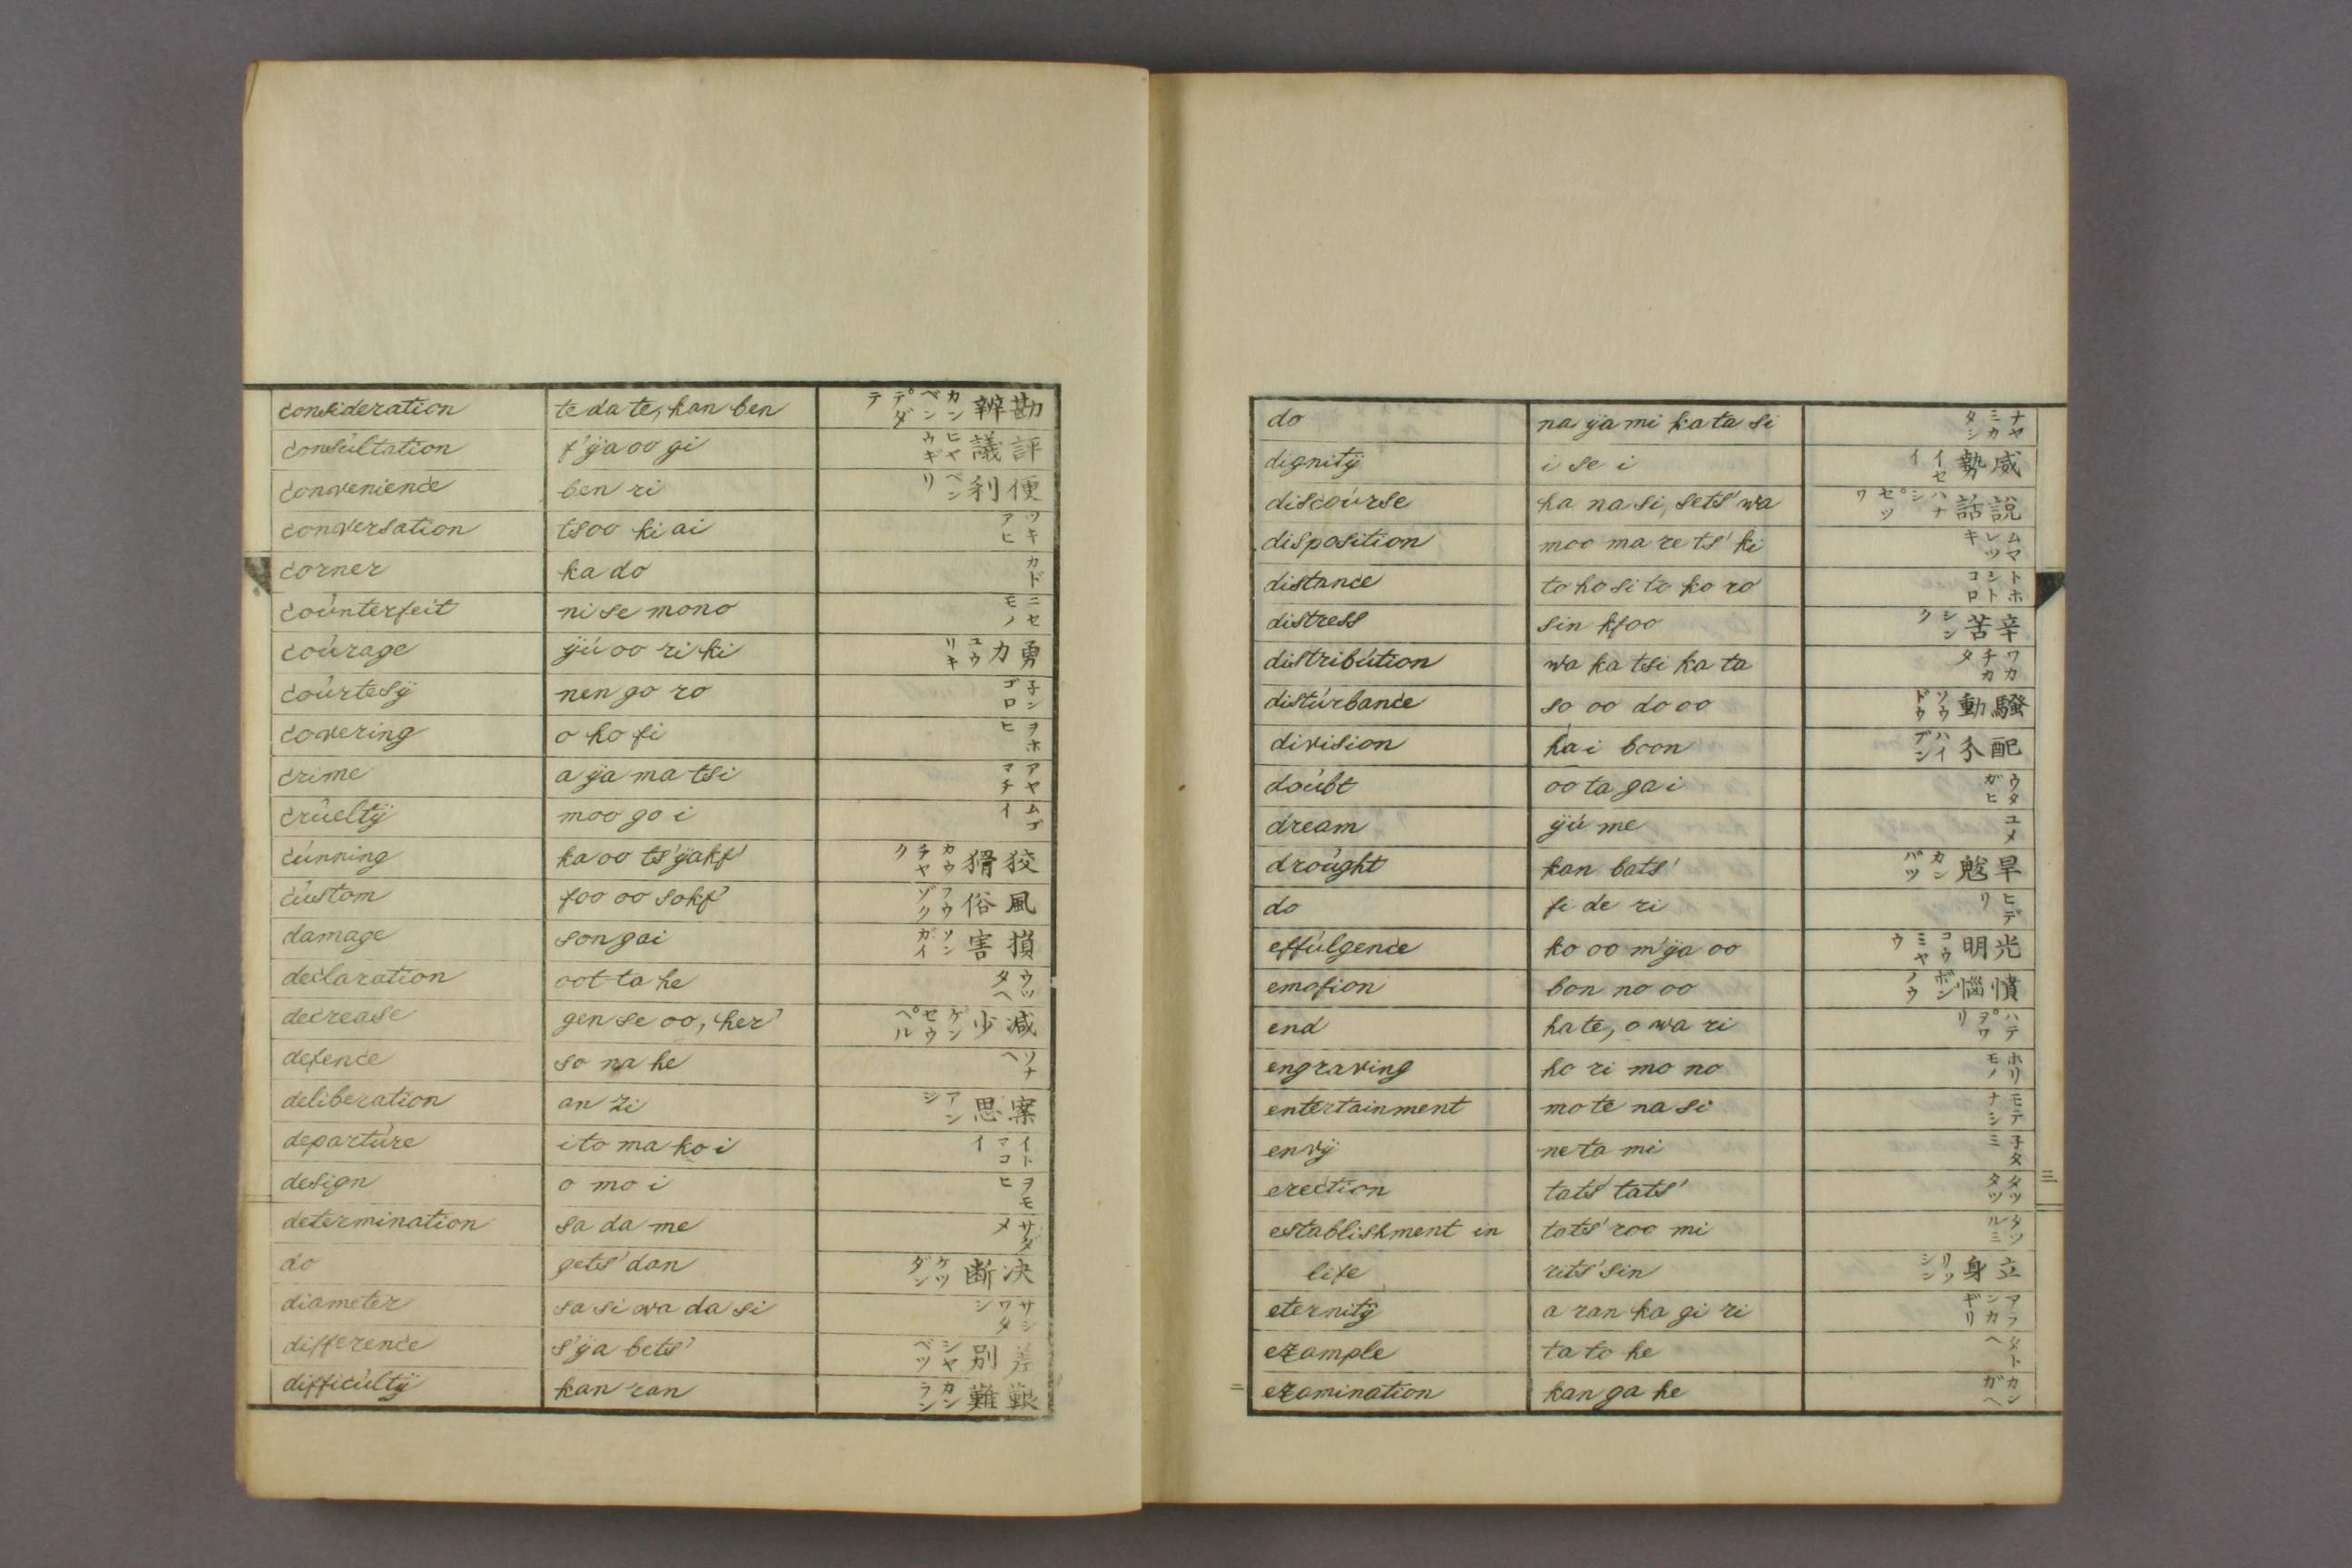 consideration te da te, kan ben 勘辨 カンベン テダテ
consultation f'ÿa oo gi 評議 ヒヤウギ
convenience ben ri 便利 ベンリ
conversation tsoo ki ai ツキアヒ
corner ka do カド
counterfeit ni se mono ニセモノ
courage ÿú oo ri ki 勇力 ユウリキ
courtesÿ nen go ro 子ンゴロ
covering o ho fi ヲホヒ
crime a ÿa ma tsi アヤマチ
crueltÿ moo go i ムゴイ
cunning ka oo ts'ÿakf' 狡猾 カウチヤク
custom foo oo sokf' 風俗 フウゾク
damage son gai 損害 ソンガイ
declaration oot ta he ウツタヘ
decrease gen se oo, her' 減少 ゲンセウ ヘル
defence so na he ソナヘ
deliberation an zi 案思 アンジ
departure i to ma ko i イトマコイ
design o mo i ヲモヒ
determination sa da me サダメ
do gets' dan 决断 ケツダン
diameter sa si wa da si サシワタシ
difference s'ÿa bets' 差別 シヤベツ
difficultÿ kan ran 艱難 カンラン
do na ÿa mi ka ta si ナヤミカタシ
dignitÿ i se i 威勢 イセイ
discourse ha na si, sets' wa 説話 ハナシ セツワ
disposition moo ma re ts' ki ムマレツキ
distance to ho si to ko ro トホシトコロ
distress sin kfoo 辛苦 シンク
distribution wa ka tsi ka ta ワカチカタ
disturbance so oo do oo 騒動 ソウドウ
division hai boon 配分 ハイブン
doubt oo ta ga i ウタガヒ
dream ÿú me ユメ
drought kan bats' 旱魃 カンバツ
do fi de ri ヒデリ
effulgence ko oo m'ÿa oo 光明 コウミヤウ
emofion bon no oo 憤悩 ボンノウ
end ha te, o wa ri ハテ ヲワリ
engraving ho ri mo no ホリモノ
entertainment mo te na si モテナシ
envÿ ne ta mi 子タミ
erection tats' tats' タツタツ
establishment in tats' roo mi タツルミ
life rits' sin 立身 リツシン
eternitÿ a ran ka gi ri アランカギリ
example ta to he タトヘ
examination kan ga he カンガヘ
三